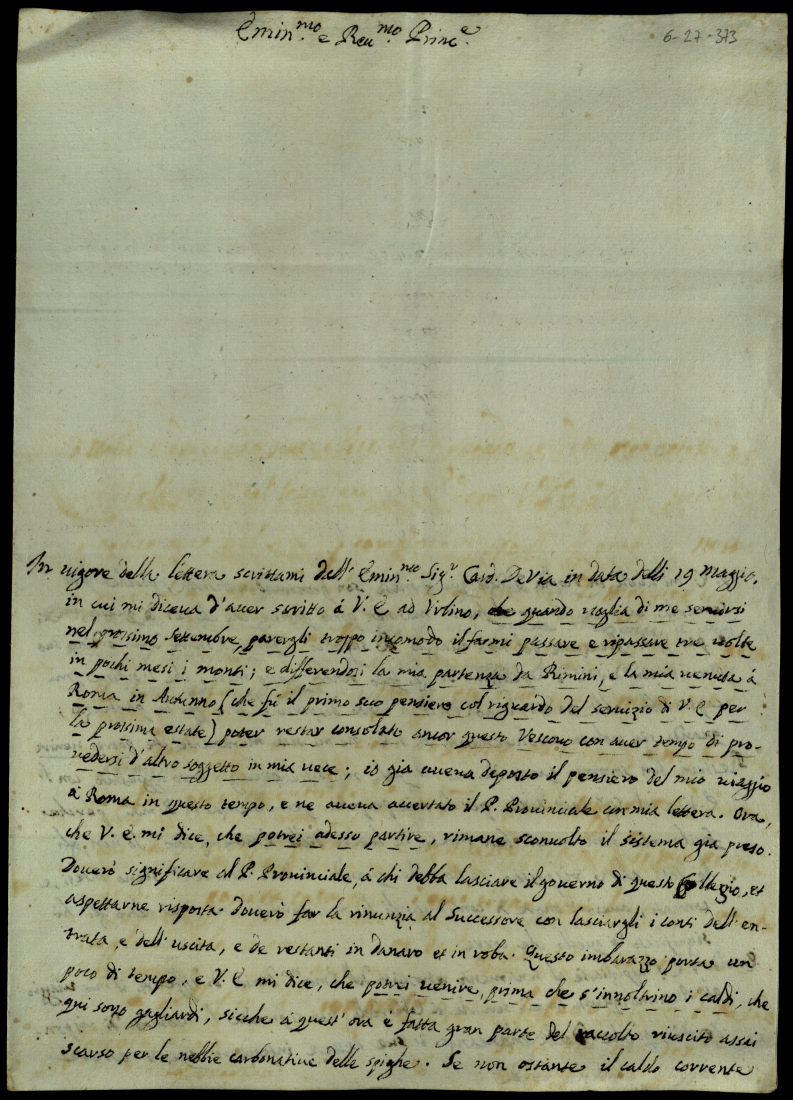 Emin.mo e Reu.mo Princ.e
6-27-373
In uigore della lettera scrittami dall' Emin.mo Sig.r Card. DaVia in data delli 19 Maggio,
in cui mi diceua d'auer scritto à V. E ad Vrbino, che quando uoglia di me seruirsi
nel prossimo Settembre, parergli troppo incomodo il farmi passare e ripassare tre uolte
in pochi mesi i monti; e differendosi la mia partenza da Rimini, e la mia uenuta à
Roma in Autunno [che fù il primo suo pensiere col riguardo del seruizio di V. E per
la prossima estate] poter restar consolato ancor questo Vescouo con auer tempo di pro-
uedersi d'altro soggetto in mia uece; io già aueua deposto il pensiero del mio uiaggio
à Roma in questo tempo, e ne aueua accertato il P. Prouinciale con mia lettera. Ora,
che V. E. mi dice, che potrei adesso partire, rimane sconuolto il sistema già preso.
Douerò significare al P. Prouinciale, à chi debba lasciare il gouerno di questo Collegio, et
aspettarne risposta. Douerò far la rinunzia al Successore con lasciargli i conti dell'en-
trata, e dell'uscita, e de restanti in danaro et in roba. Questo imbarazzo porta un
poco di tempo, e V. E mi dice, che potrei uenire, prima che s'innoltrino i caldi, che
qui sono gagliardi, sicche à quest'ora è fatta gran parte del raccolto riuscito assai
scarso per le nebbie carbonatiue delle spighe. Se non ostante il caldo corrente